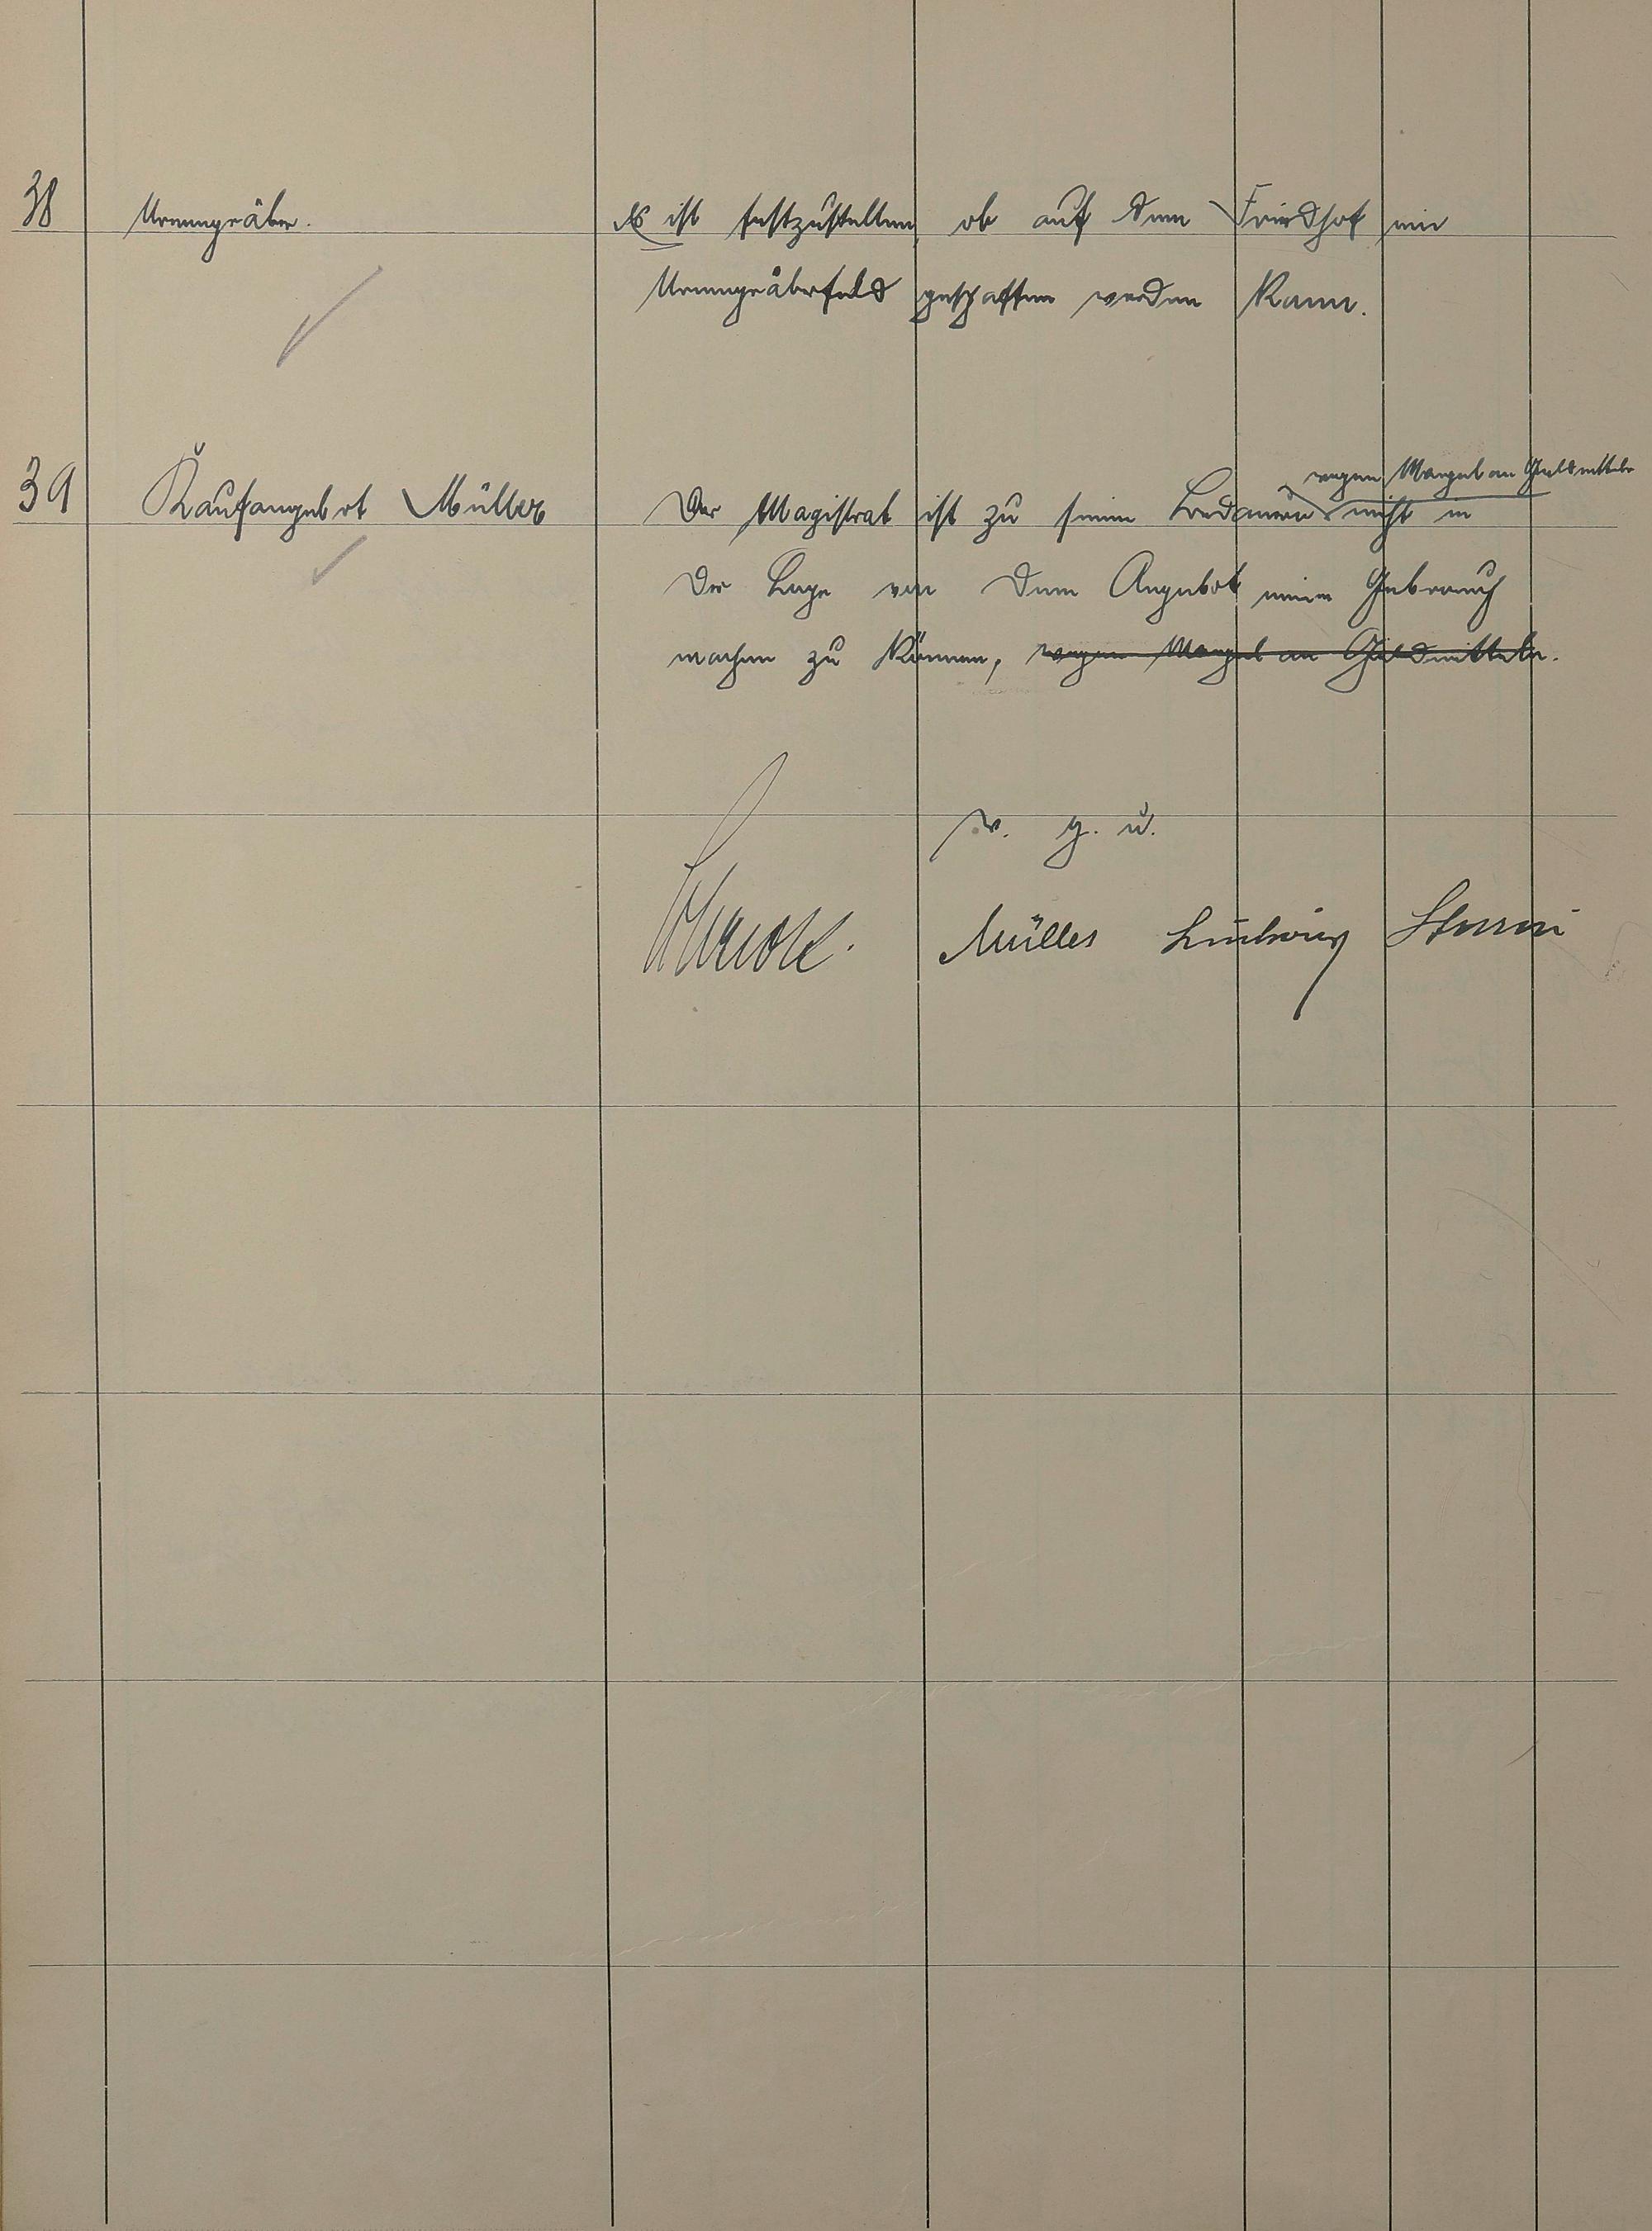 38 Urnengräber. Es ist festzustellen, ob auf dem Friedhof ein
Urnengräberfeld geschaffen werden kann.
wegen Mangel an Geldmitteln
39 Kaufangebot Müller Der Magistrat ist zu seinem Bedauern nicht in
der Lage von dem Angebot einen Gebrauch
machen zu können, wegen Mangel an Geldmitteln.
v. g. u.
Müller Ludwig Sturm